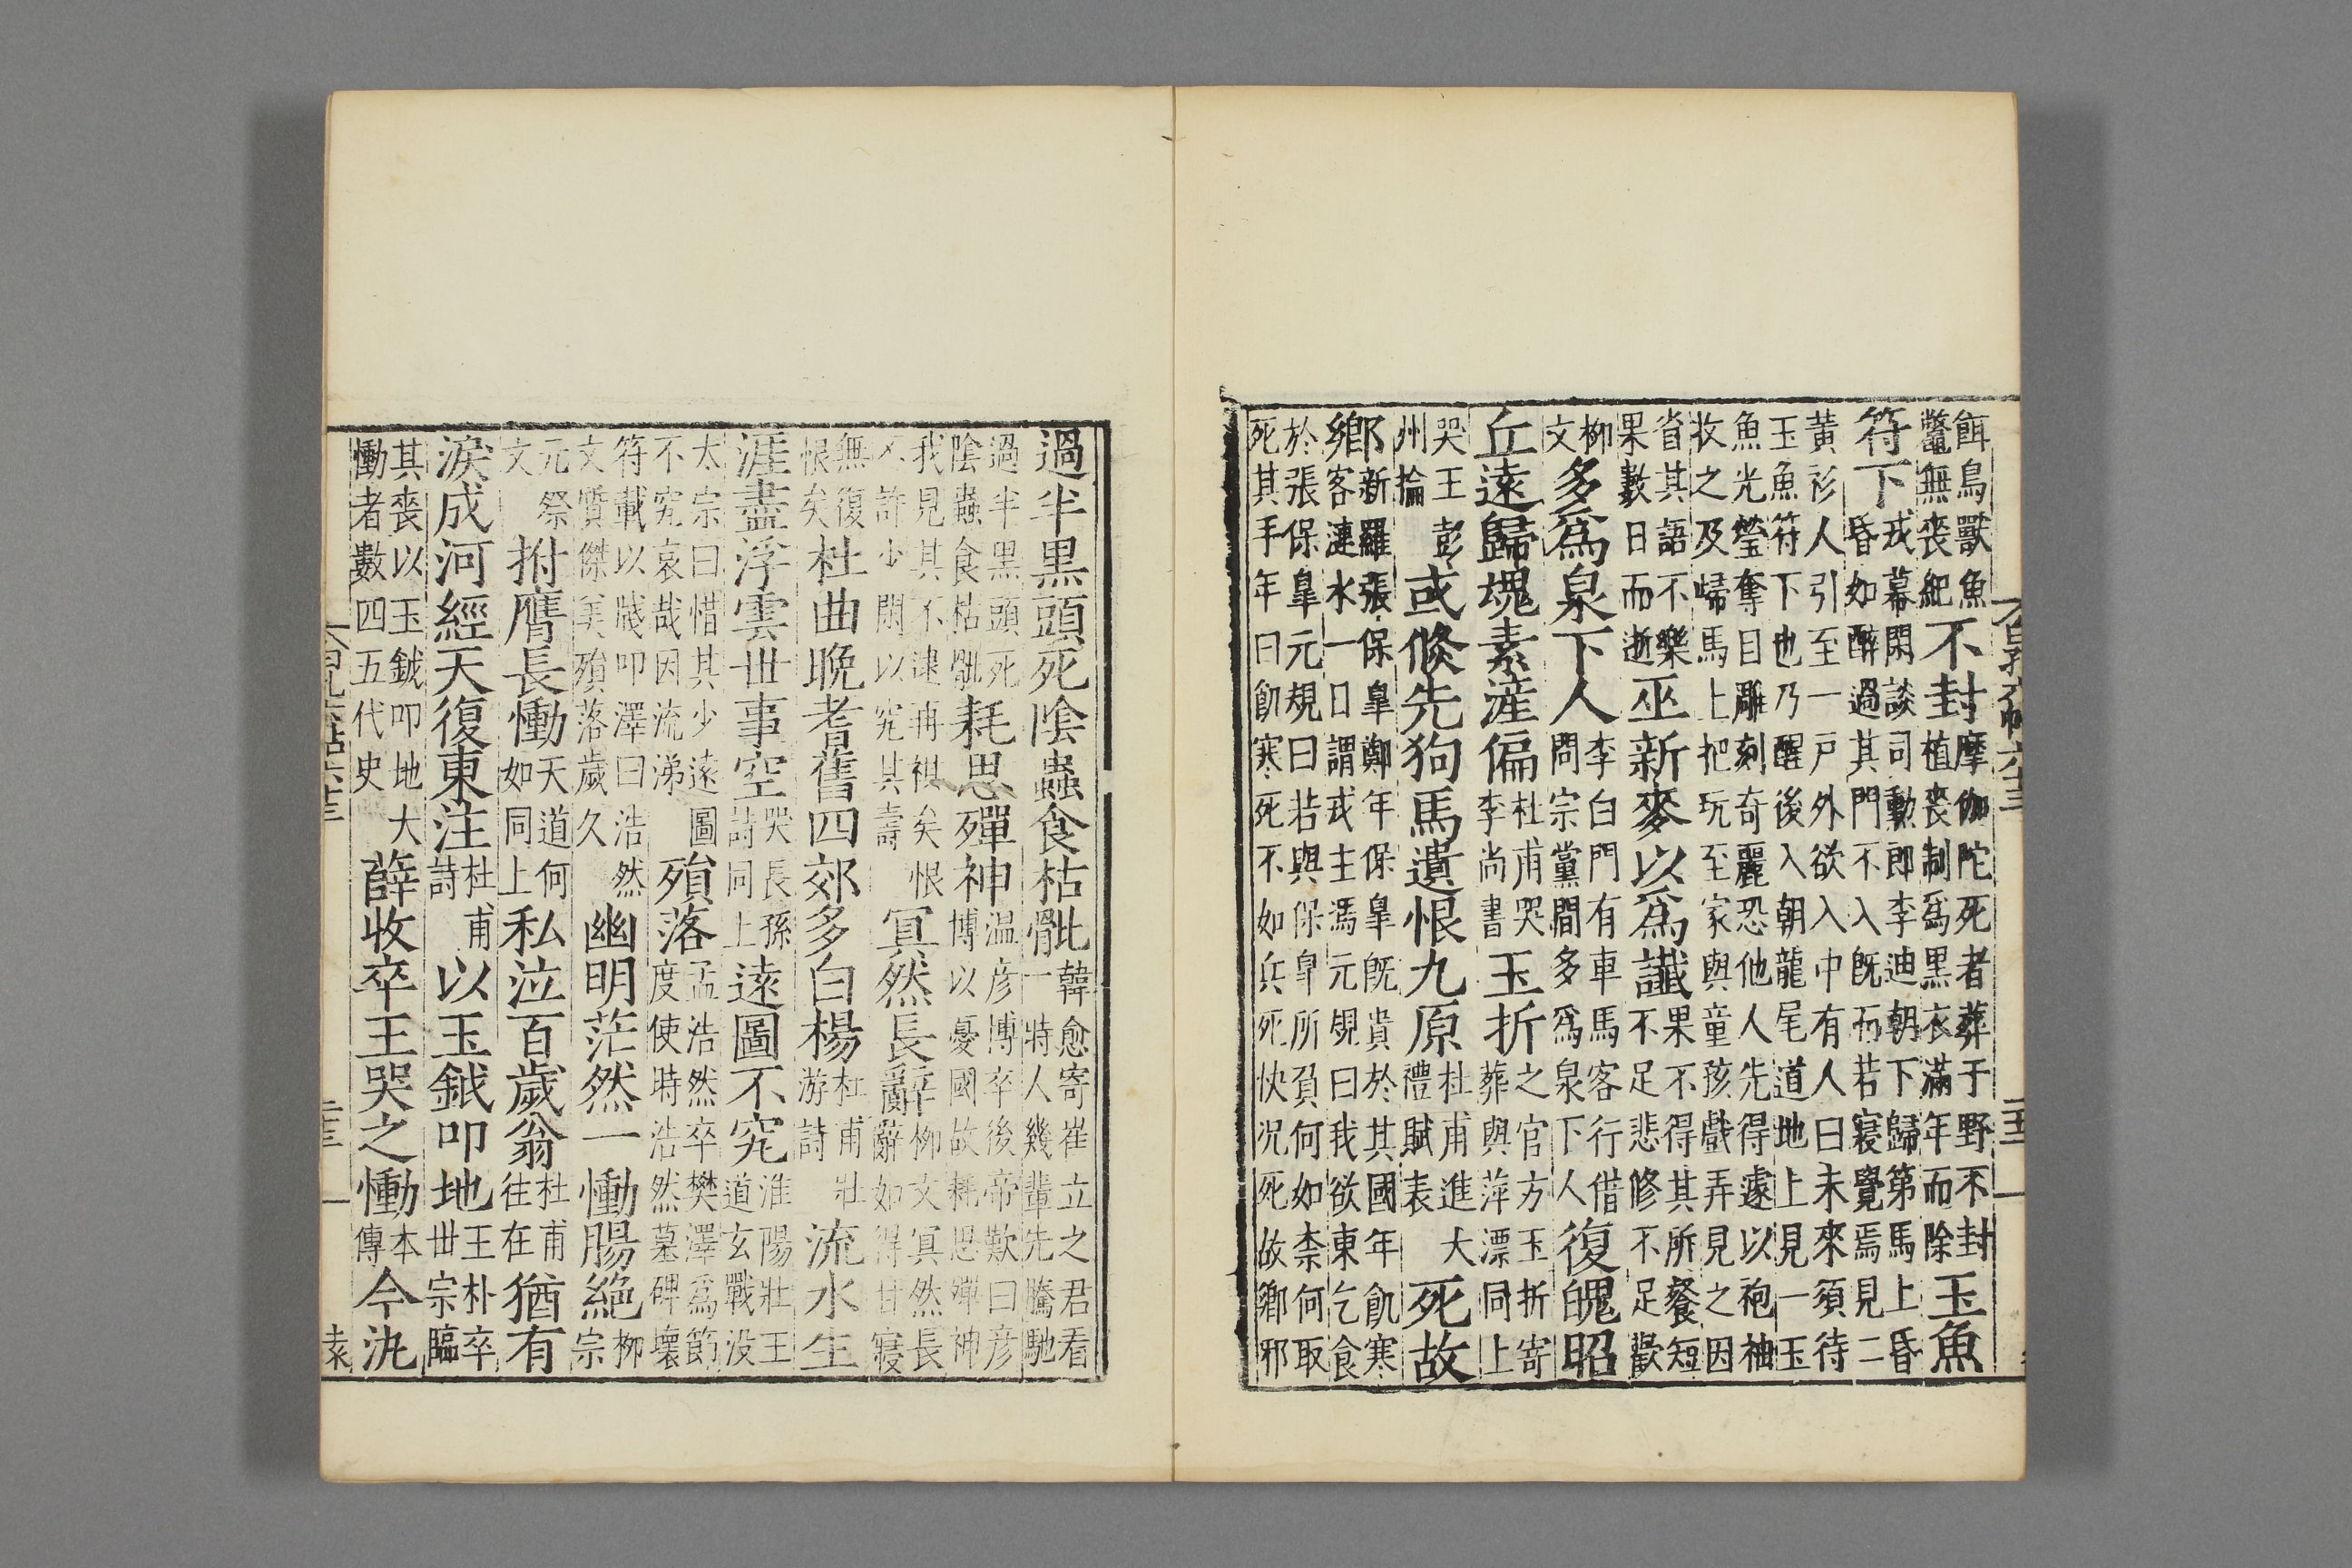 餌鳥獸魚鼈無喪紀不封摩伽陀死者葬于野不封植喪制爲黑衣滿年而除玉魚
符下戎幕閑談司勳郎李迪朝下歸第馬上昏昏如醉過其門不入既而若寢覺焉見二
黃衫人引至一戶外欲入中有人曰未來須待玉魚符下也乃醒後入朝龍尾道地上見一玉
魚光瑩奪目雕刻奇麗恐他人先得遽以袍袖收之及歸馬上把玩至家與童孩戲弄見之因
省其語不樂果數日而逝巫新麥以爲讖果不得其所餐短不足悲修不足歡
柳文多爲泉下人李白門有車馬客行借問宗黨間多爲泉下人復魄昭
丘遠歸塊素滻偏杜甫哭李尚書玉折之官方玉折寄葬與萍漂同上
哭王彭州掄或倏先狗馬遺恨九原杜甫進大禮賦表死故
鄉新羅張保皋鄭年保皋既貴於其國年飢寒客漣水一日謂戍主馮元規曰我欲東乞食
於張保皋元規曰若與保皋所負何如柰何取死其手年曰飢寒死不如兵死快況死故鄉邪
過半黑頭死陰蟲食枯骴韓愈寄崔立之君看一特人幾輩先騰馳
過半黑頭死陰蟲食枯骴耗思殫神温彦博卒後帝歎曰彦博以憂國故耗思殫神
我見其不逮再禩矣恨不許少閑以究其壽冥然長辭柳文冥然長辭如得甘寢
無復恨矣杜曲晩耆舊四郊多白楊杜甫壯游詩流水生
涯盡浮雲世事空哭長孫詩同上遠圖不究淮陽壯王道玄戰没
太宗曰惜其少遠圖不究哀哉因流涕殞落孟浩然卒樊澤爲節度使時浩然墓碑壞
符載以牋叩澤曰浩然文質傑美殞落歲久幽明茫然一慟腸絕柳宗
元祭文拊膺長慟天道何如同上私泣百歲翁杜甫往在猶有
淚成河經天復東注杜甫詩以玉鉞叩地王朴卒世宗臨
其喪以玉鉞叩地大慟者數四五代史薛收卒王哭之慟本傳今沈